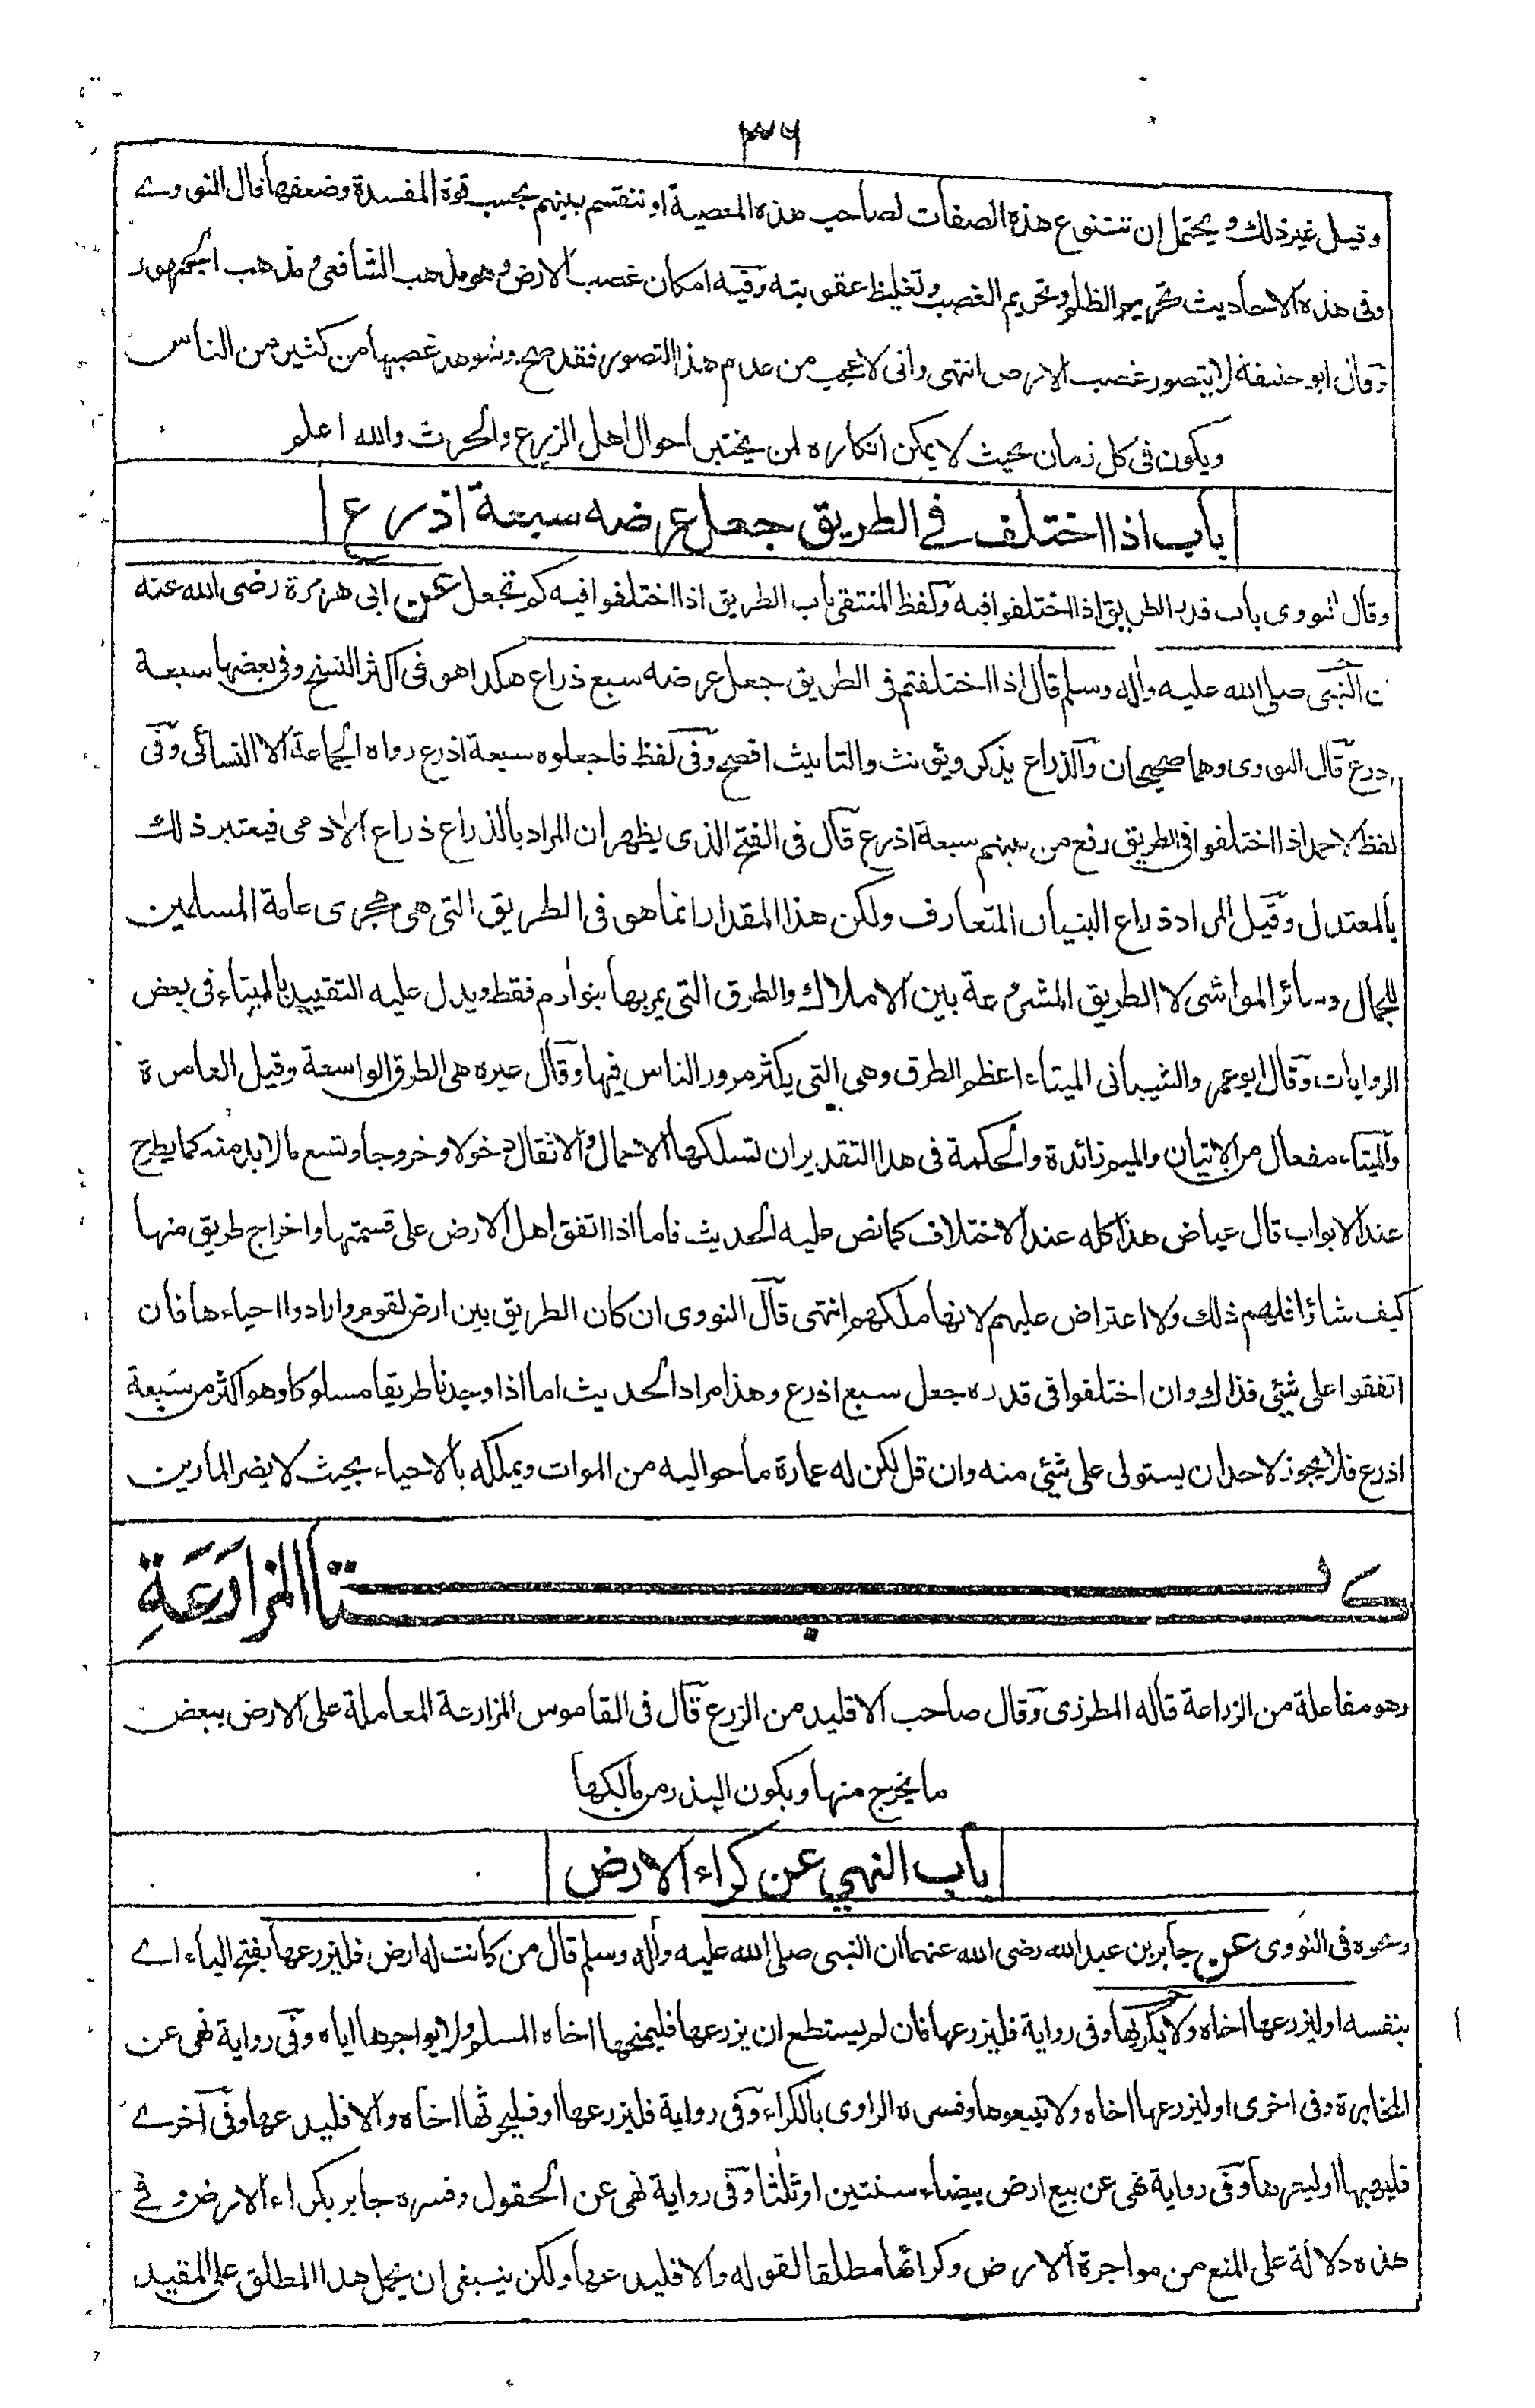 ٣٣٦
وقيل غير ذلك ويحتمل ان تتنوع هذه الصفات لصاحب هذه المعصية او تنقسم بينهم بحسب قوة المفسدة وضعفها قال النووے
وفى هذه الاحاديث تحريم الظلم وتحريم الغصب وتغليظ عقوبته وفيه امكان غصب الارض وهو مذهب الشافعى ومذهب الجمهور
وقال ابو حنيفة لا يتصور غصب الارض انتهى وانى لاعجب من عدم هذا التصور فقد صح وشوهد غصبها من كثير من الناس
ويكون فى كل زمان بحيث لا يمكن انكاره لمن يختبر احوال اهل الزرع والحرث والله اعلم
باب اذا اختلف في الطريق جعل عرضه سبعة اذرع
وقال النووى باب قدر الطريق اذا اختلفوا فيه ولفظ المنتقى باب الطريق اذا اختلفوا فيه كم تجعل عن ابى هريرة رضى الله عنه
ن النبى صلى الله عليه واله وسلم قال اذا اختلفتم فى الطريق جعل عرضه سبع ذراع هكذا هو فى اكثر النسخ وفى بعضها سبعة
ذرع قال النووى وهما صحيحان والذراع يذكر ويؤنث والتانيث افصح وفى لفظ فاجعلوه سبعة اذرع رواه الجماعة الا النسائى وفى
لفظ لاحمد اذا اختلفوا فى الطريق رفع من بينهم سبعة اذرع قال فى الفتح الذى يظهر ان المراد بالذراع ذراع الادمى فيعتبر ذلك
بالمعتدل وقيل المراد ذراع البنيان المتعارف ولكن هذا المقدار انما هو فى الطريق التى هى مجرى عامة المسلمين
للجمال وسائر المواشى لا الطريق المشروعة بين الاملاك والطرق التى يمر بها بنو ادم فقط ويدل عليه التقييد بالميتاء فى بعض
الروايات وقال ابو عمرو الشيبانى الميتاء اعظم الطرق وهى التى يكثر مرور الناس فيها وقال غيره هى الطرق الواسعة وقيل العامرة
والميتاء مفعال من الاتيان والميم زائدة والحكمة فى هذا التقدير ان تسلكها الاحمال والاثقال دخولا وخروجا وتسع ما لا بد منه كما يطرح
عند الابواب قال عياض هذا كله عند الاختلاف كما نص عليه الحديث فاما اذا اتفق اهل الارض على قسمتها واخراج طريق منها
كيف شاؤا فلهم ذلك ولا اعتراض عليهم لانها ملكهم انتهى قال النووى ان كان الطريق بين ارض لقوم وارادوا احياءها فان
اتفقوا على شئ فذاك وان اختلفوا فى قدره جعل سبع اذرع وهذا مراد الحديث اما اذا وجدنا طريقا مسلوكا وهو اكثر من سبعة
اذرع فلا يجوز لاحد ان يستولى على شئ منه وان قل لكن له عمارة ما حواليه من الموات ويملكه بالاحياء بحيث لا يضر المارين
كتاب المزارعة
وهو مفاعلة من الزراعة قاله المطرزى وقال صاحب الاقليد من الزرع قال فى القاموس المزارعة المعاملة على الارض ببعض
ما يخرج منها ويكون البذر من مالكها
باب النهي عن كراء الارض
ونحوه فى النووى عن جابر بن عبد الله رضى الله عنهما ان النبى صلى الله عليه واله وسلم قال من كانت له ارض فليزرعها بفتح الياء اے
بنفسه او ليزرعها اخاه ولا يكريها وفى رواية فليزرعها فان لم يستطع ان يزرعها فليمنحها اخاه المسلم ولا يواجرها اياه وفى رواية نهى عن
المخابرة وفى اخرى او ليزرعها اخاه ولا تبيعوها وفسره الراوى بالكراء وفى رواية فليزرعها او فليحرثها اخاه والا فليدعها وفى اخرے
فليهبها او ليعرها وفى رواية نهى عن بيع ارض بيضاء سنتين او ثلثا وفى رواية نهى عن الحقول وفسره جابر بكراء الارض وفے
هذه دلالة على المنع من مواجرة الارض وكرائها مطلقا لقوله والا فليدعها ولكن ينبغى ان يحمل هذا المطلق على المقيد